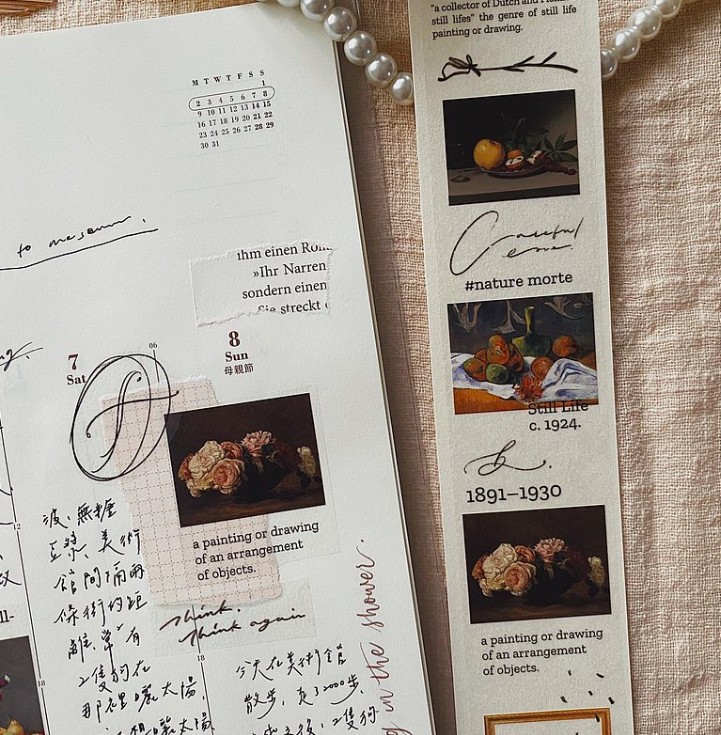 M T W T F S S
1
2 3 4 5 6 7 8
9 10 11 12 13 14 15
16 17 18 19 20 21 22
23 24 25 26 27 28 29
30 31
to museum.
ihm einen
»Ihr Narren
sondern einen
Sie streckt
7
Sat
06
8
Sun
母親節
a painting or drawing
of an arrangement
of objects.
think.
think again
12
18
18
無糖
豆漿、美術
館間隔兩
條街的距
離，草有
2隻狗在
那裡曬太陽，
曬太陽
今天在美術館
散步，走了2000步，
2隻狗
in the shower.
"a collector of Dutch and
still lifes" the genre of still life
painting or drawing.
#nature morte
Still Life
c. 1924.
1891–1930
a painting or drawing
of an arrangement
of objects.